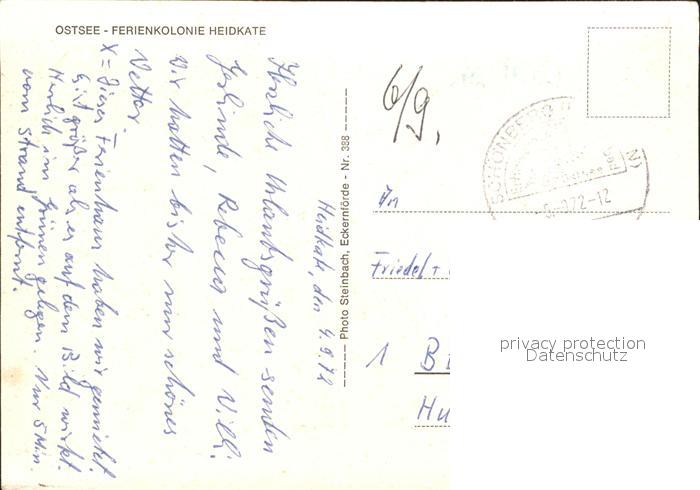 OSTSEE - FERIENKOLONIE HEIDKATE
Heidkate, den 4.9.72
Herzliche Urlaubsgrüßen senden
Gerlinde, Rebecca und Willi.
Wir hatten bisher nur schönes
Wetter.
X = Dieses Ferienhaus haben wir gemietet.
Es ist größer als es auf dem Bild wirkt.
Herrlich im Grünen gelegen. Nur 5 Min.
vom Strand entfernt.
Photo Steinbach, Eckernförde - Nr. 388
6/9.
SCHÖNBERG
72-12
An
Friedel +
1 B
Hu
privacy protection
Datenschutz